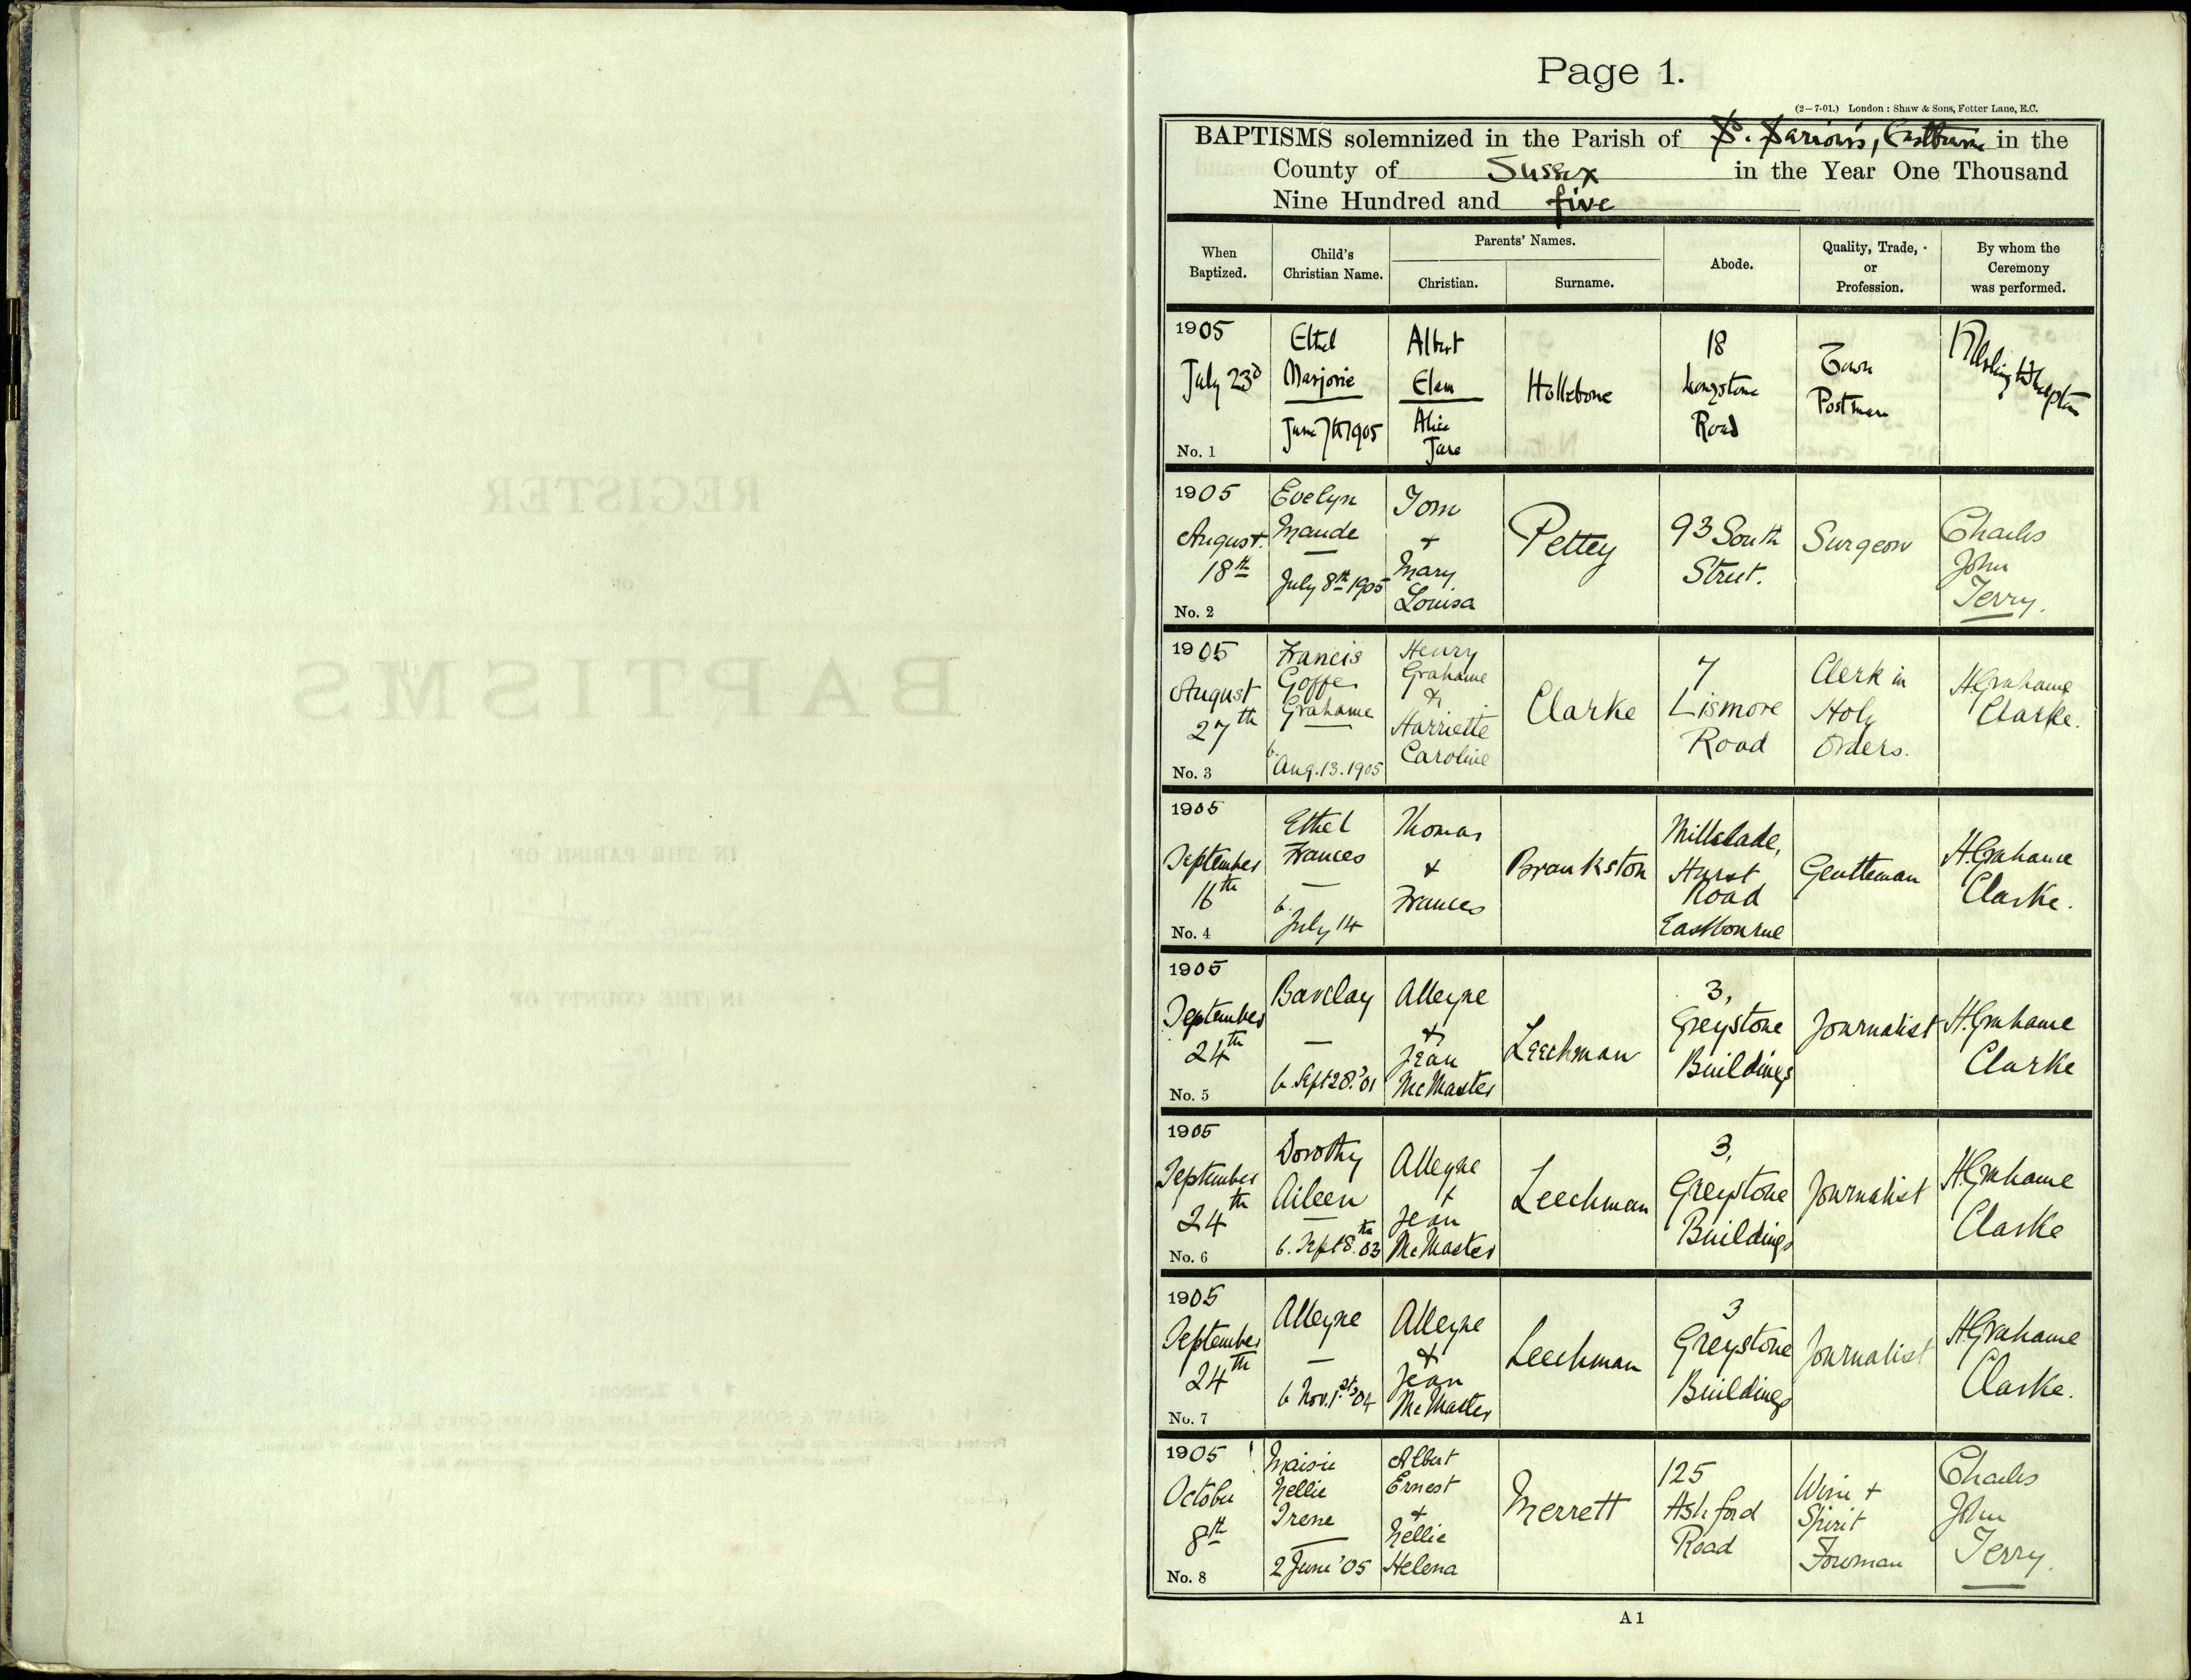 Page 1.
(2-7-01.) London: Shaw & Sons, Fetter Lane, E.C.
BAPTISMS solemnized in the Parish of S. Saviour's, in the
County of Sussex in the Year One Thousand
Nine Hundred and five
When Baptized.
Child's Christian Name.
Parents' Names.
Christian.
Surname.
Abode.
Quality, Trade, or Profession.
By whom the Ceremony was performed.
1905
July 23d
No. 1
Ethel
Marjorie
June 7th 1905
Albert
Elam
Alice
Jane
Hollebone
18
Longstone
Road
Town
Postman
1905
August
18th
No. 2
Evelyn
Maude
July 8th 1905
Tom
+
Mary
Louisa
Pettey
93 South
Street.
Surgeon
Charles
John
Terry.
1905
August
27th
No. 3
Francis
Goffe
Grahame
b.
Aug. 13. 1905
Henry
Grahame
&
Harriette
Caroline
Clarke
7
Lismore
Road
Clerk in
Holy
Orders.
H Grahame
Clarke.
1905
September
16th
No. 4
Ethel
Frances
b.
July 14
Thomas
+
Frances
Brankston
Millslade,
Hurst
Road
Eastbourne
Gentleman
H. Grahame
Clarke.
1905
September
24th
No. 5
Barclay
b. Sept 28. '01
Alleyne
+
Jean
McMaster
Leechman
3,
Greystone
Buildings
Journalist
H. Grahame
Clarke
1905
September
24th
No. 6
Dorothy
Aileen
b. Sept 8th. 03
Alleyne
+
Jean
McMaster
Leechman
3,
Greystone
Buildings
Journalist
H. Grahame
Clarke
1905
September
24th
No. 7
Alleyne
b Nov. 1st '04
Alleyne
+
Jean
McMaster
Leechman
3
Greystone
Buildings
Journalist
H. Grahame
Clarke.
1905
October
8th
No. 8
Maisie
Nellie
Irene
2 June '05
Albert
Ernest
+
Nellie
Helena
Merrett
125
Ashford
Road
Wine +
Spirit
Foreman
Charles
John
Terry.
A 1